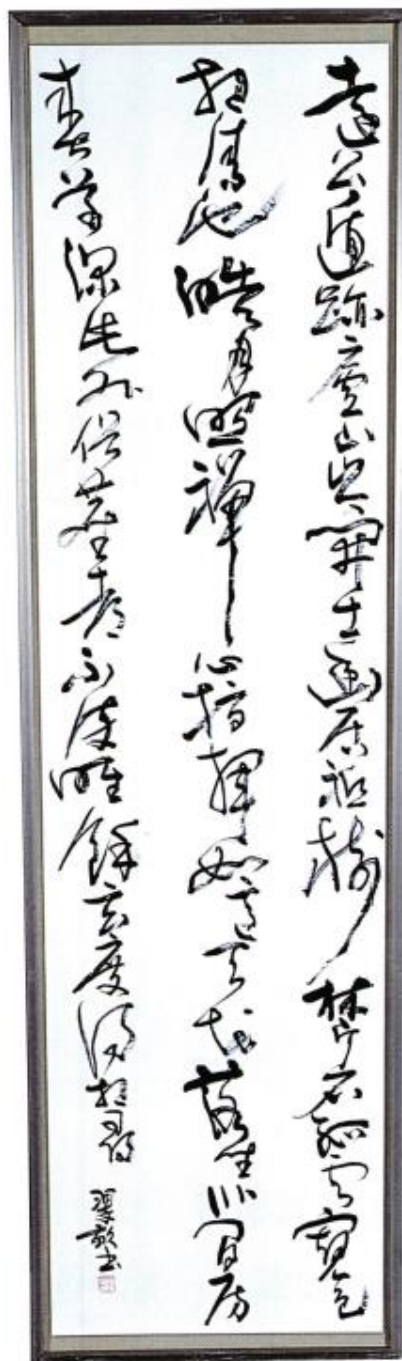 遠公遁跡廬山岑開士幽居祇樹林片石孤雲窺色
相清池皓月照禪心指揮如意天花落坐臥閒房
春草深此外俗塵都不染唯餘玄度得相尋 書